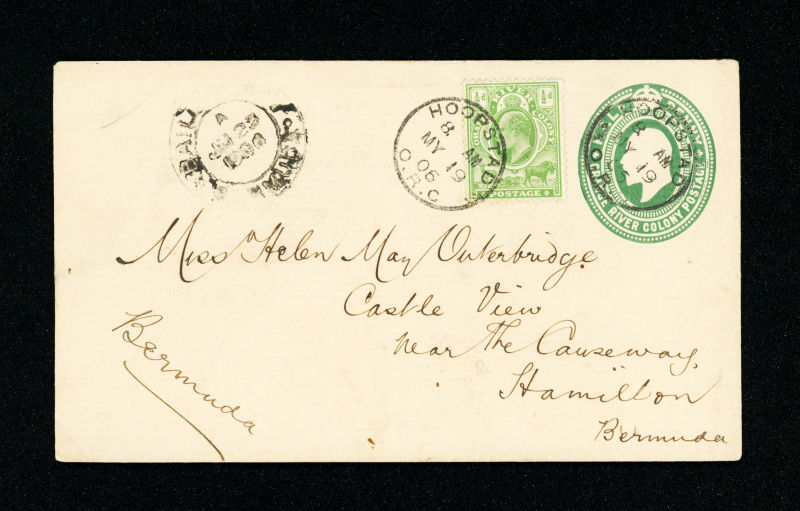 HOOPSTAD
8 AM
MY 19
06
O.R.C
½d ½d
POSTAGE
HOOPSTAD
8 AM
MY 19
ORANGE RIVER COLONY POSTAGE
A
Miss Helen May Outerbridge
Castle View
near The Causeway,
Hamilton
Bermuda
Bermuda